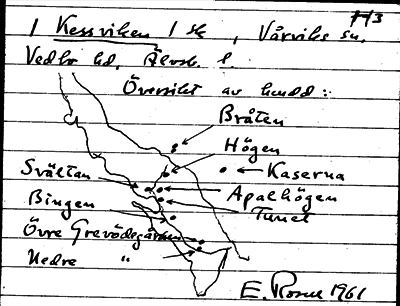 H3
1 Kessviken 1 sk , Vårviks sn.
Vedbo hd. Älvsb. l.
Översikt av hmdd:
Bråten
Högen
Kaserna
Svältan
Apalhögen
Bingen
Tunet
Övre Grevödegården
Nedre "
E. Rosell 1961